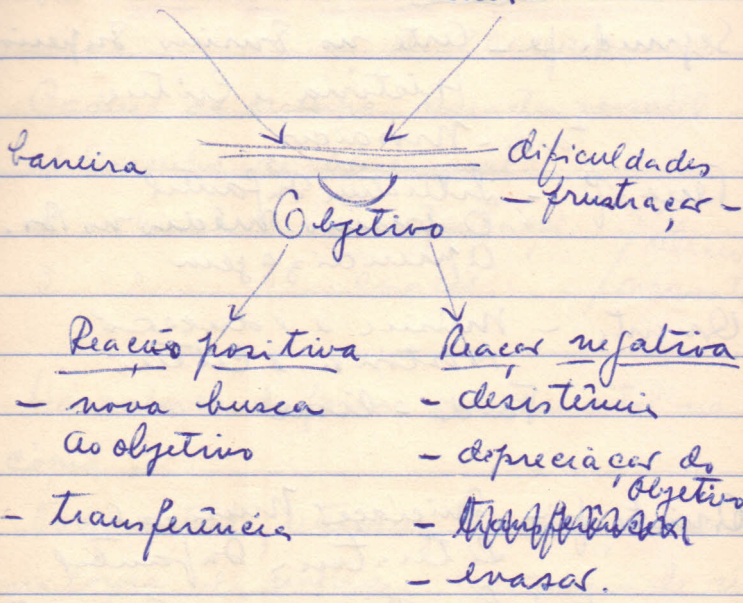 barreira
dificuldades
- frustração -
Objetivo
Reação positiva
- nova busca
ao objetivo
- transferência
Reação negativa
- desistência
- depreciação do
objetivo
- transferência
- evasão.